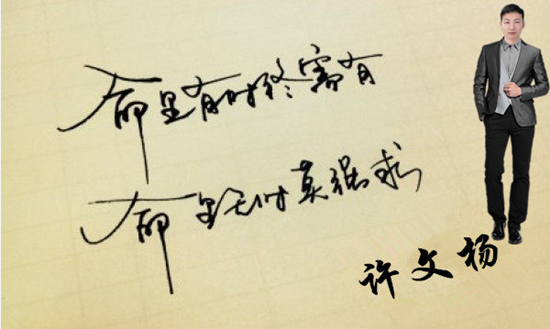 命里有时终需有
命里无时莫强求
许文杨